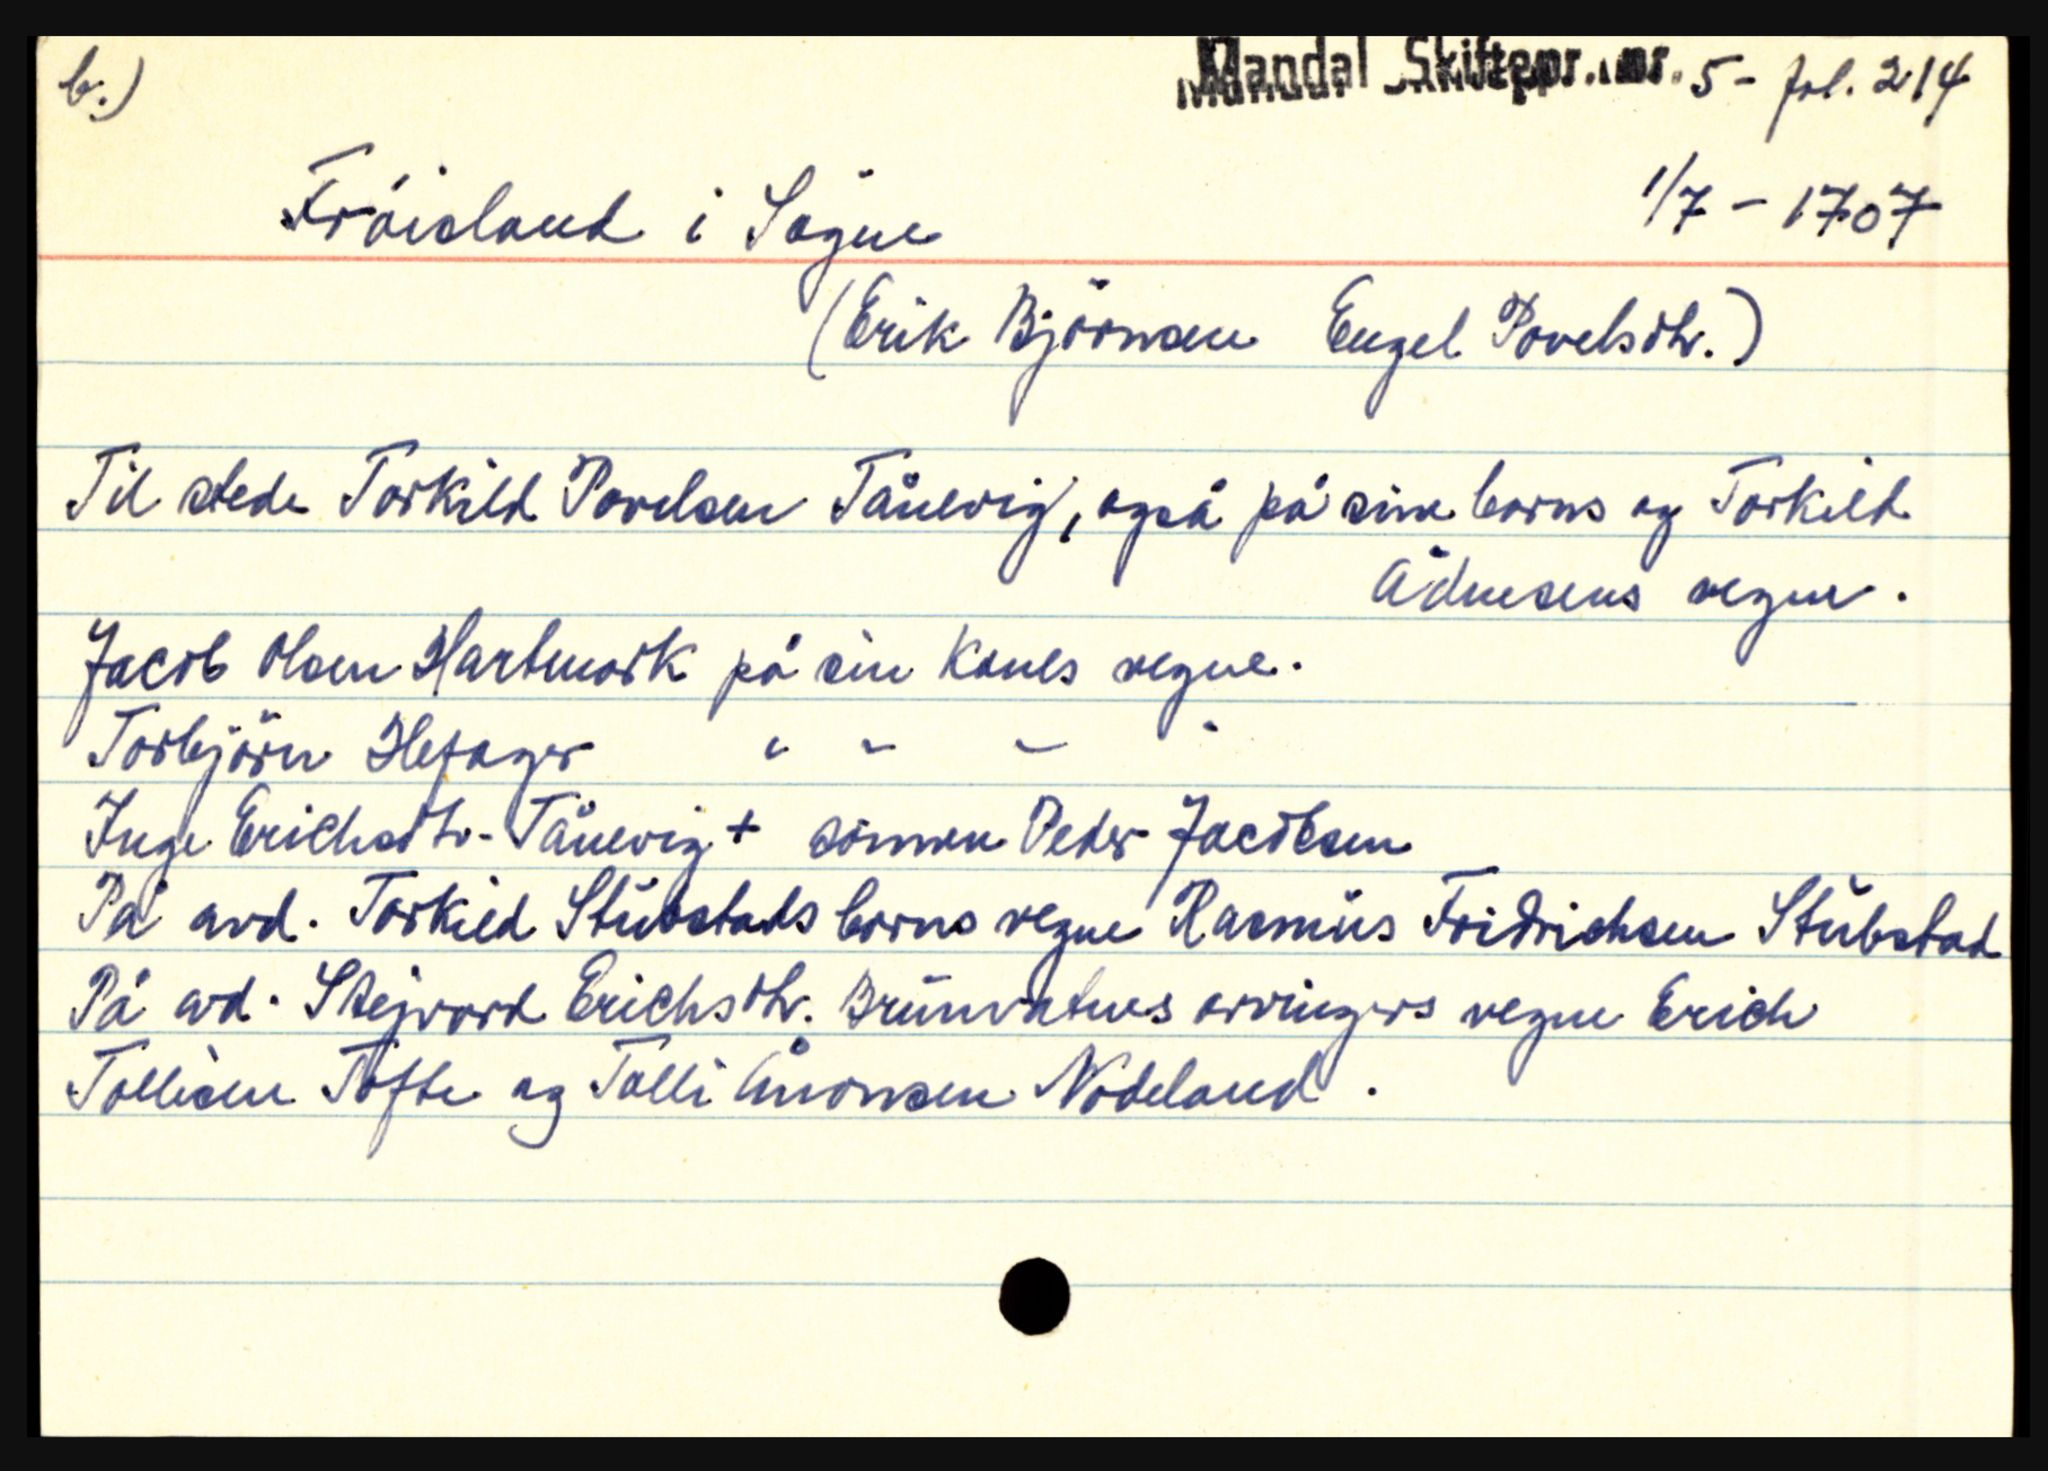 b.)
Mandal Skiftepr. nr. 5 - fol. 214
Fröisland i Sögne
1/7 - 1707
(Erik Björnsen Engel Povelsdtr.)
Til stede Torkild Povelsen Tånevig, også på sine børns og Torkild
Ådnesens vegne.
Jacob Olsen Hartmark på sin kones vegne.
Torbjörn Hefager " " " "
Inge Erichsdtr. Tånevig + sönnen Peder Jacobsen
På avd. Torkild Stubstads børns vegne Rasmus Fridrichsen Stubstad
På avd. Stejvord Erichsdtr. Brunvatnes arvingers vegne Erich
Tollisen Tofte og Tolli Ånonsen Nodeland.